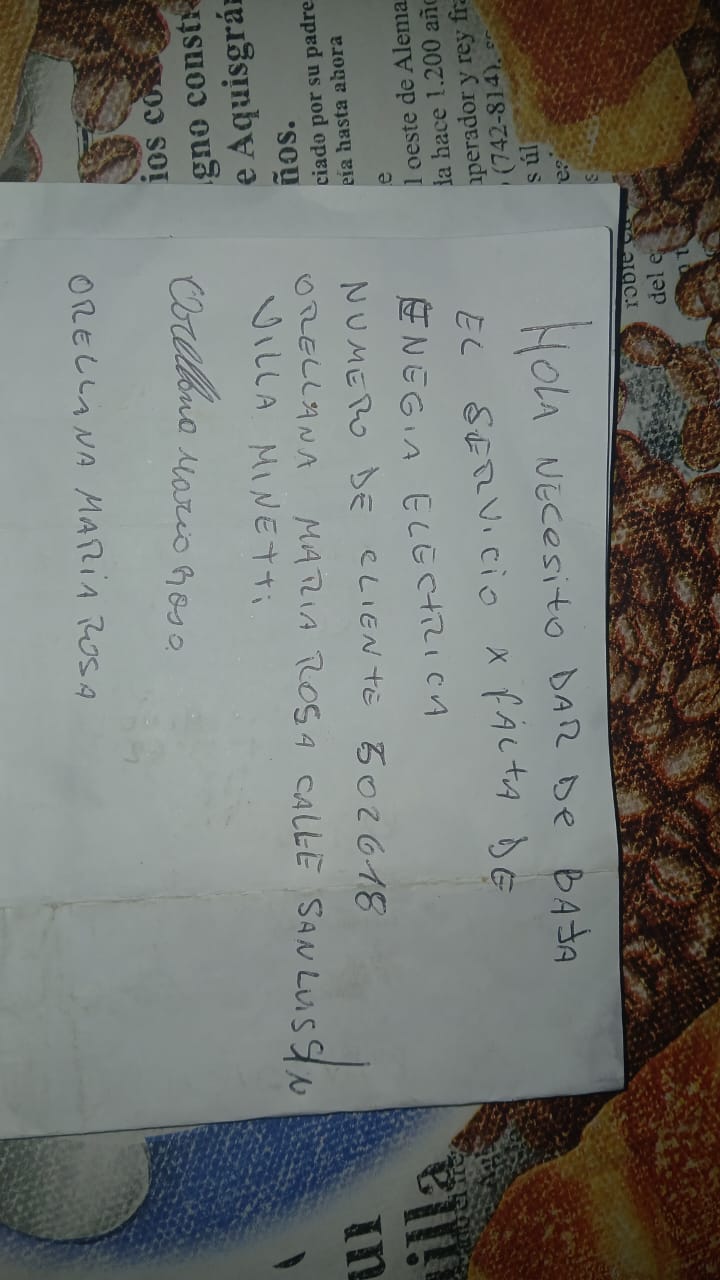 HOLA NECESITO DAR DE BAJA
EL SERVICIO X FALTA DE
ENEGIA ELECTRICA
NUMERO DE CLIENTE 502618
ORELLANA MARIA ROSA CALLE SAN LUIS S/N
VILLA MINETTI
Orellana Maria Rosa.
ORELLANA MARIA ROSA
ios co
gno constr
e Aquisgrá
ños.
ciado por su padre
eía hasta ahora
e
l oeste de Alema
la hace 1.200 año
nperador y rey fra
(742-814),
s úl
del e
ur
illa